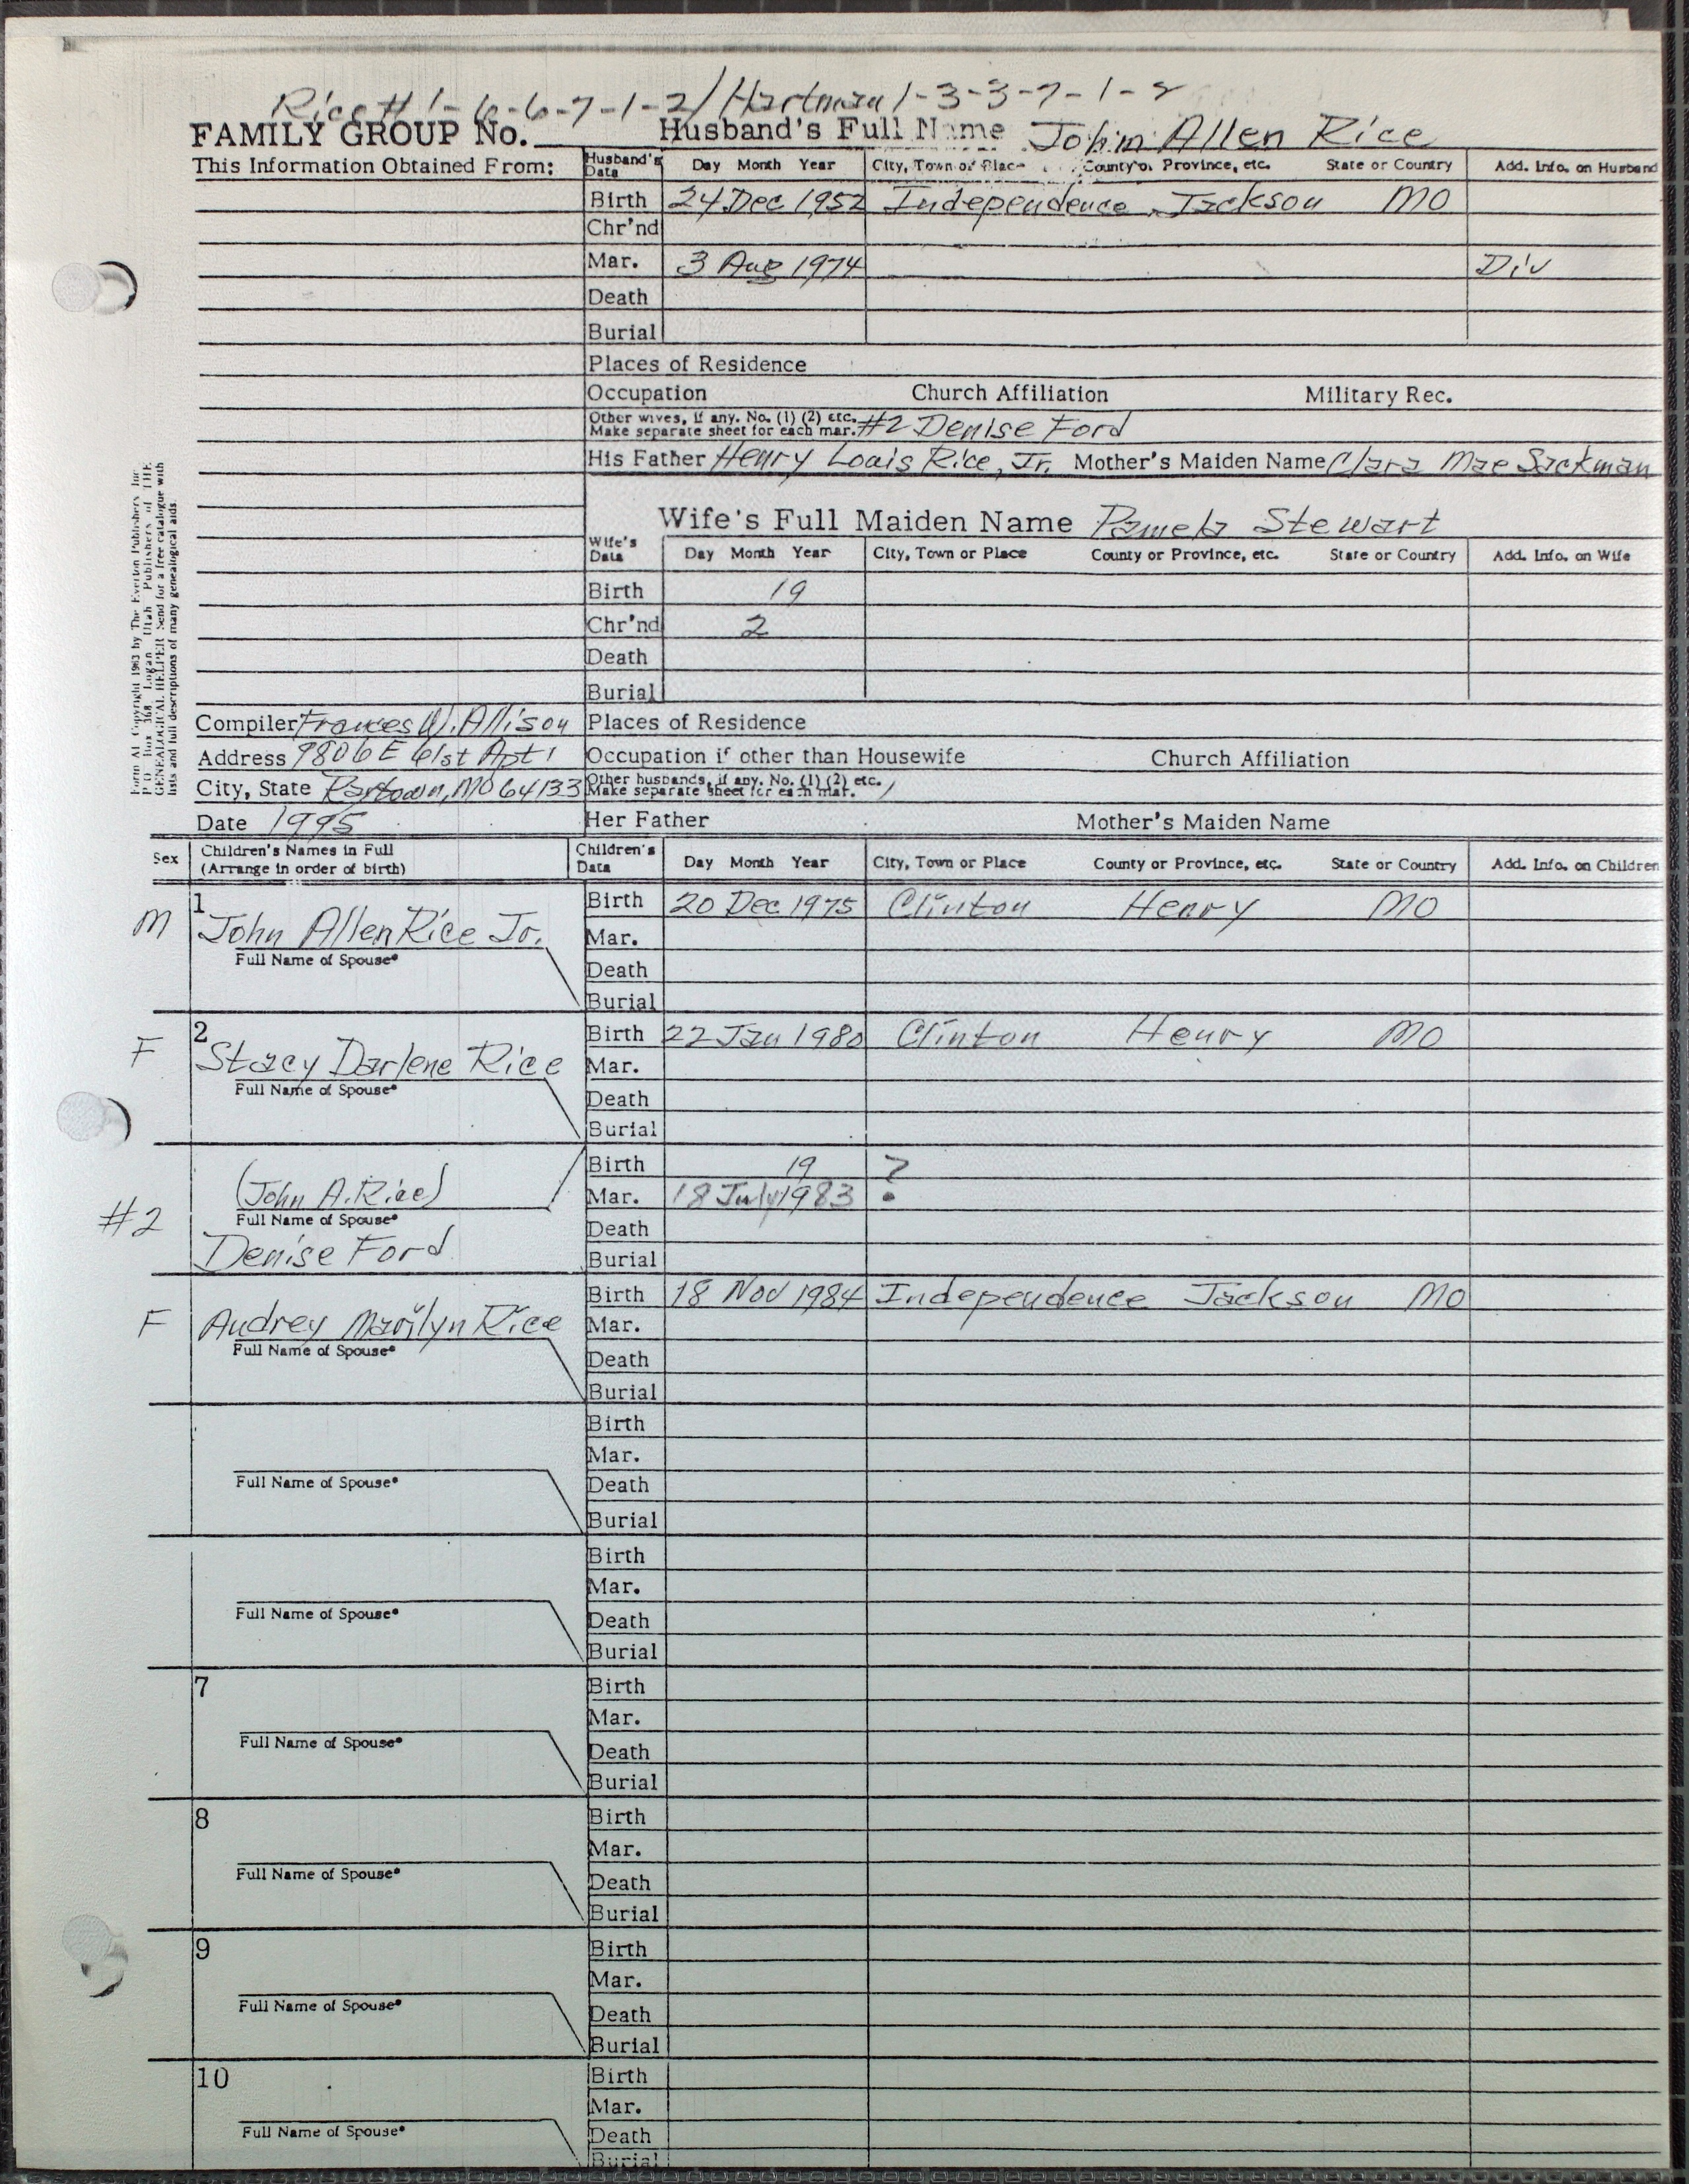 Rice # 1-6-6-7-1-2/Hartman 1-3-3-7-1-2
FAMILY GROUP No. Husband's Full Name John Allen Rice
This Information Obtained From: Husband's Data Day Month Year City, Town or Place County or Province, etc. State or Country Add. Info. on Husband
Birth 24 Dec 1952 Independence Jackson MO
Chr'nd
Mar. 3 Aug 1974 Div
Death
Burial
Places of Residence
Occupation Church Affiliation Military Rec.
Other wives, if any. No. (1) (2) etc.
Make separate sheet for each mar. #2 Denise Ford
His Father Henry Louis Rice, Jr. Mother's Maiden Name Clara Mae Sackman
Wife's Full Maiden Name Pamela Stewart
Wife's Data Day Month Year City, Town or Place County or Province, etc. State or Country Add. Info. on Wife
Birth 19
Chr'nd 2
Death
Burial
Form A1 Copyright 1963 by The Everton Publishers Inc
P O Box 368 Logan Utah Publishers of THE
GENEALOGICAL HELPER Send for a free catalogue with
lists and full descriptions of many genealogical aids
Compiler Frances W. Allison Places of Residence
Address 9806 E 61st Apt 1 Occupation if other than Housewife Church Affiliation
City, State MO 64133 Other husbands, if any. No. (1) (2) etc.
Make separate sheet for each mar.
Date 1995 Her Father Mother's Maiden Name
Sex Children's Names in Full (Arrange in order of birth) Children's Data Day Month Year City, Town or Place County or Province, etc. State or Country Add. Info. on Children
1 Birth 20 Dec 1975 Clinton Henry MO
M John Allen Rice Jr. Mar.
Full Name of Spouse* Death
Burial
2 Birth 22 Jan 1980 Clinton Henry MO
F Stacy Darlene Rice Mar.
Full Name of Spouse* Death
Burial
Birth 19 ?
(John A. Rice) Mar. 18 July 1983
#2 Full Name of Spouse* Death
Denise Ford Burial
Birth 18 Nov 1984 Independence Jackson MO
F Audrey Marilyn Rice Mar.
Full Name of Spouse* Death
Burial
Birth
Mar.
Full Name of Spouse* Death
Burial
Birth
Mar.
Full Name of Spouse* Death
Burial
7 Birth
Mar.
Full Name of Spouse* Death
Burial
8 Birth
Mar.
Full Name of Spouse* Death
Burial
9 Birth
Mar.
Full Name of Spouse* Death
Burial
10 Birth
Mar.
Full Name of Spouse* Death
Burial